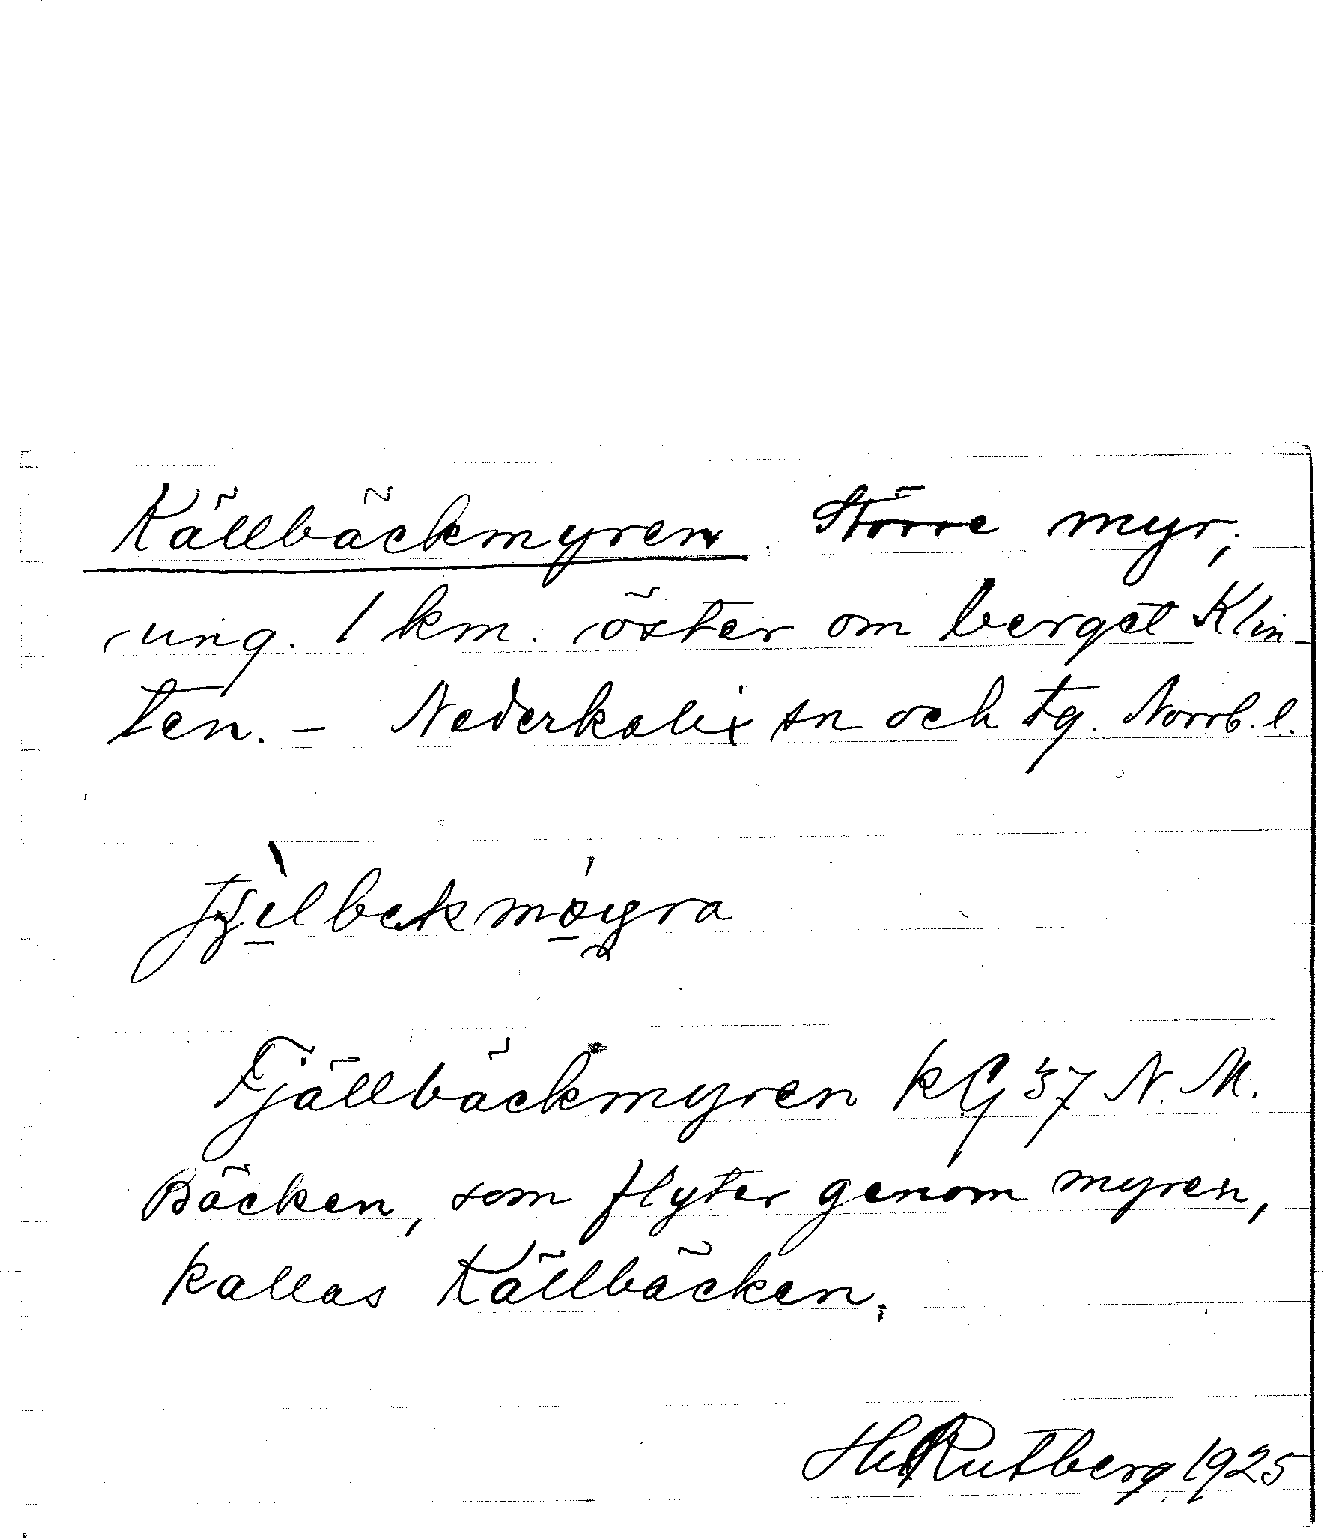 Källbäckmyren. Större myr,
ung. 1 km. öster om berget Klin-
ten. - Nederkalix sn och tg. Norrb. l.
Fjällbäckmyren kG 37 N. M.
Bäcken, som flyter genom myren,
kallas Källbäcken.
Hd Rutberg 1925